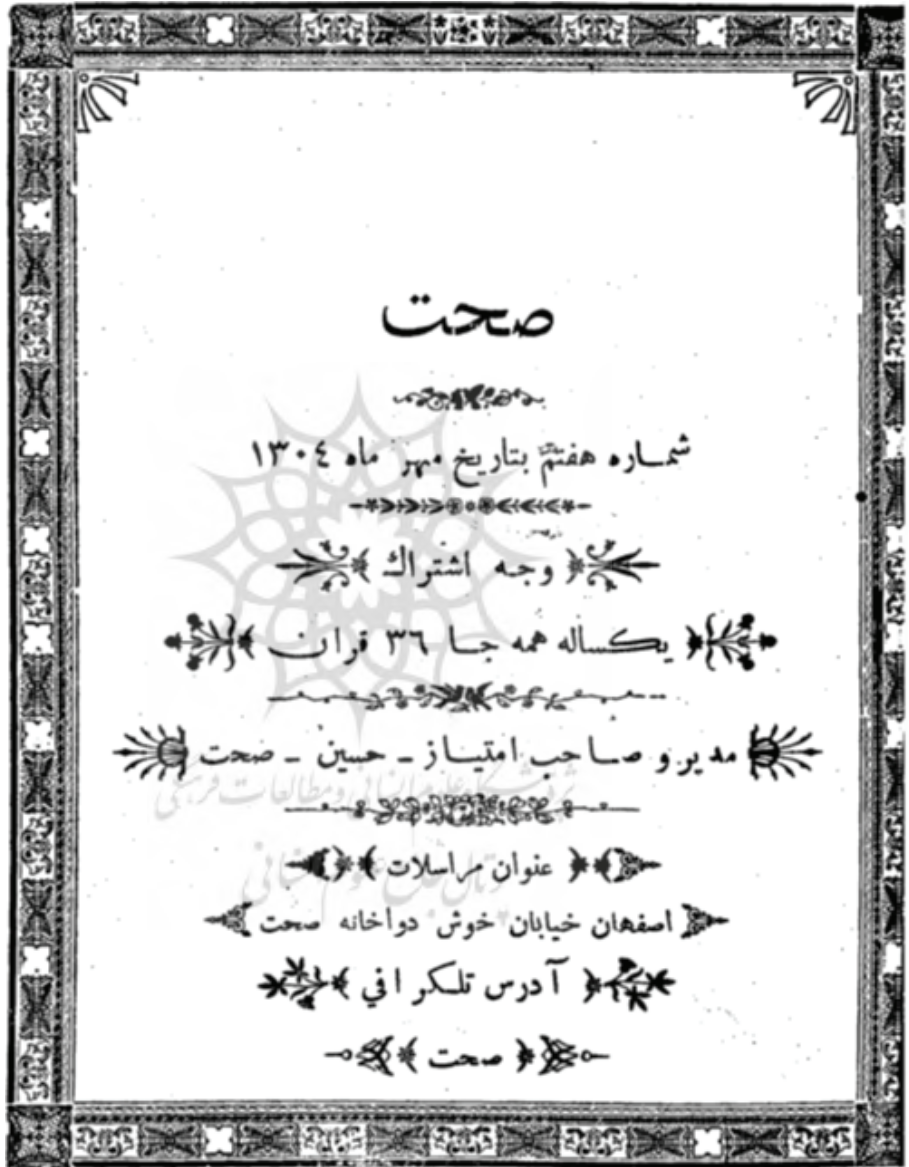 صحت
شماره هفتم بتاریخ مهر ماه ١٣٠٤
وجه اشتراك
یکساله همه جا ٣٦ قران
مدیر و صاحب امتیاز ـ حسین ـ صحت
پژوهشگاه علوم انسانی و مطالعات فرهنگی
عنوان مراسلات
پرتال جامع علوم انسانی
اصفهان خیابان خوش دواخانه صحت
آدرس تلکرافي
صحت